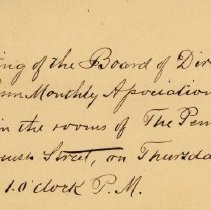 ing of the Board of Dir
nn Monthly Association
in the rooms of The Pen
Street, on Thursda
1. o'clock P.M.